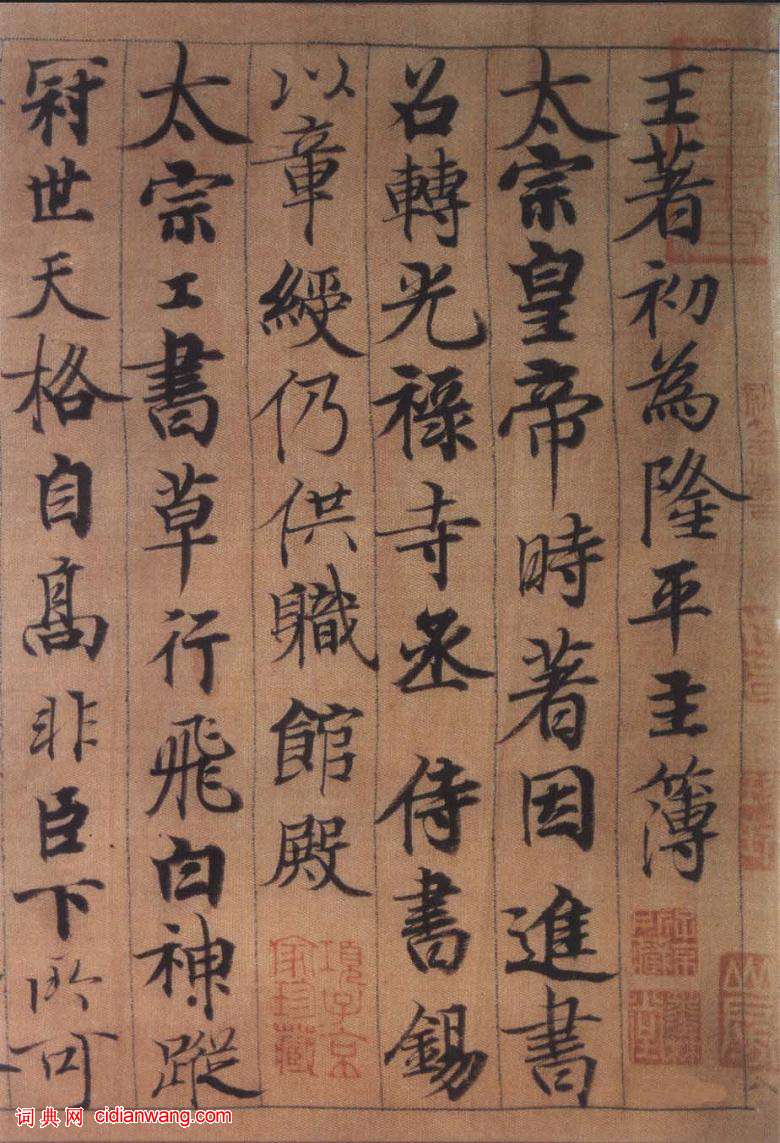 王著初為隆平主簿
太宗皇帝時著因進書
召轉光祿寺丞侍書錫
以章綬仍供職館殿
太宗工書草行飛白神蹤
冠世天格自高非臣下所可
項子京
家珍藏
词典网 cidianwang.com